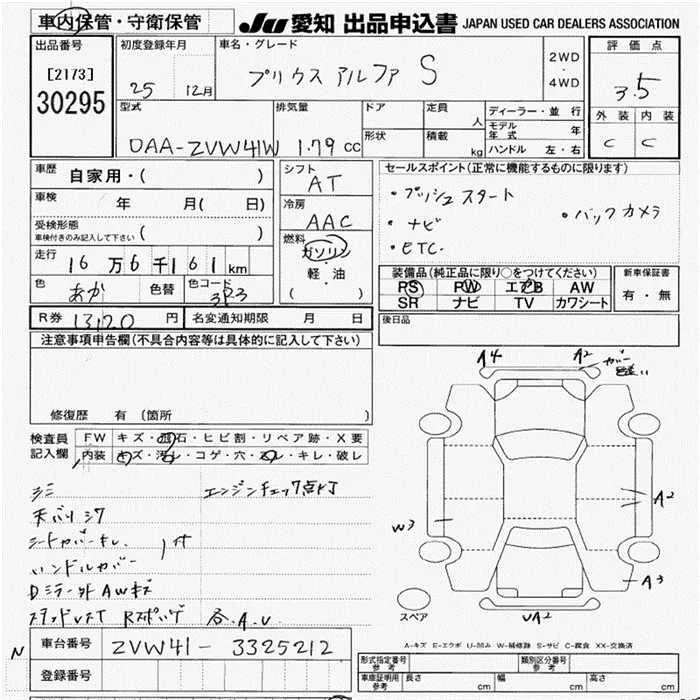 車内保管・守衛保管
JU 愛知 出品申込書 JAPAN USED CAR DEALERS ASSOCIATION
出品番号
[2173]
30295
初度登録年月
25 12月
車名・グレード
プリウス アルファ S
2WD
・
4WD
評価点
3.5
外装 内装
C C
型式
DAA-ZVW41W
排気量
1.79 cc
ドア
形状
定員
人
積載
kg
ディーラー・並 行
モデル年式 年
ハンドル 左・右
車歴
自家用・( )
車検
年 月( 日)
受検形態
車検付きのみ記入して下さい ( )
走行
16万6千161km
色
あか
色替
色コード
3R3
シフト
AT
冷房
AAC
燃料
ガソリン
・
軽・油
( )
セールスポイント(正常に機能するものに限ります)
・プッシュスタート
・ナビ
・バックカメラ
・ETC.
装備品(純正品に限り○をつけてください)
PS PW エアB AW
SR ナビ TV カワシート
新車保証書
有・無
R券 13,120 円
名変通知期限 月 日
後日品
注意事項申告欄(不具合内容等は具体的に記入して下さい)
修復歴 有 (箇所 )
検査員
記入欄
FW キズ・飛石・ヒビ割・リペア跡・X要
内装 キズ・汚レ・コゲ・穴・スレ・キレ・破レ
シミ
エンジンチェック点灯
天バリシワ
シートカバーキレ
ハンドルカバー
付
Dミラー外AWキズ
各.A.U
A4
A2
カバー
A2
W3
A3
UA2
スペア
A-キズ E-エクボ U-凹み W-補修跡 S-サビ C-腐食 XX-交換済
N
車台番号 ZVW41-3325212
登録番号
形式指定番号
参考
類別区分番号
参考
車庫証明用
参考
長さ cm
幅 cm
高さ cm